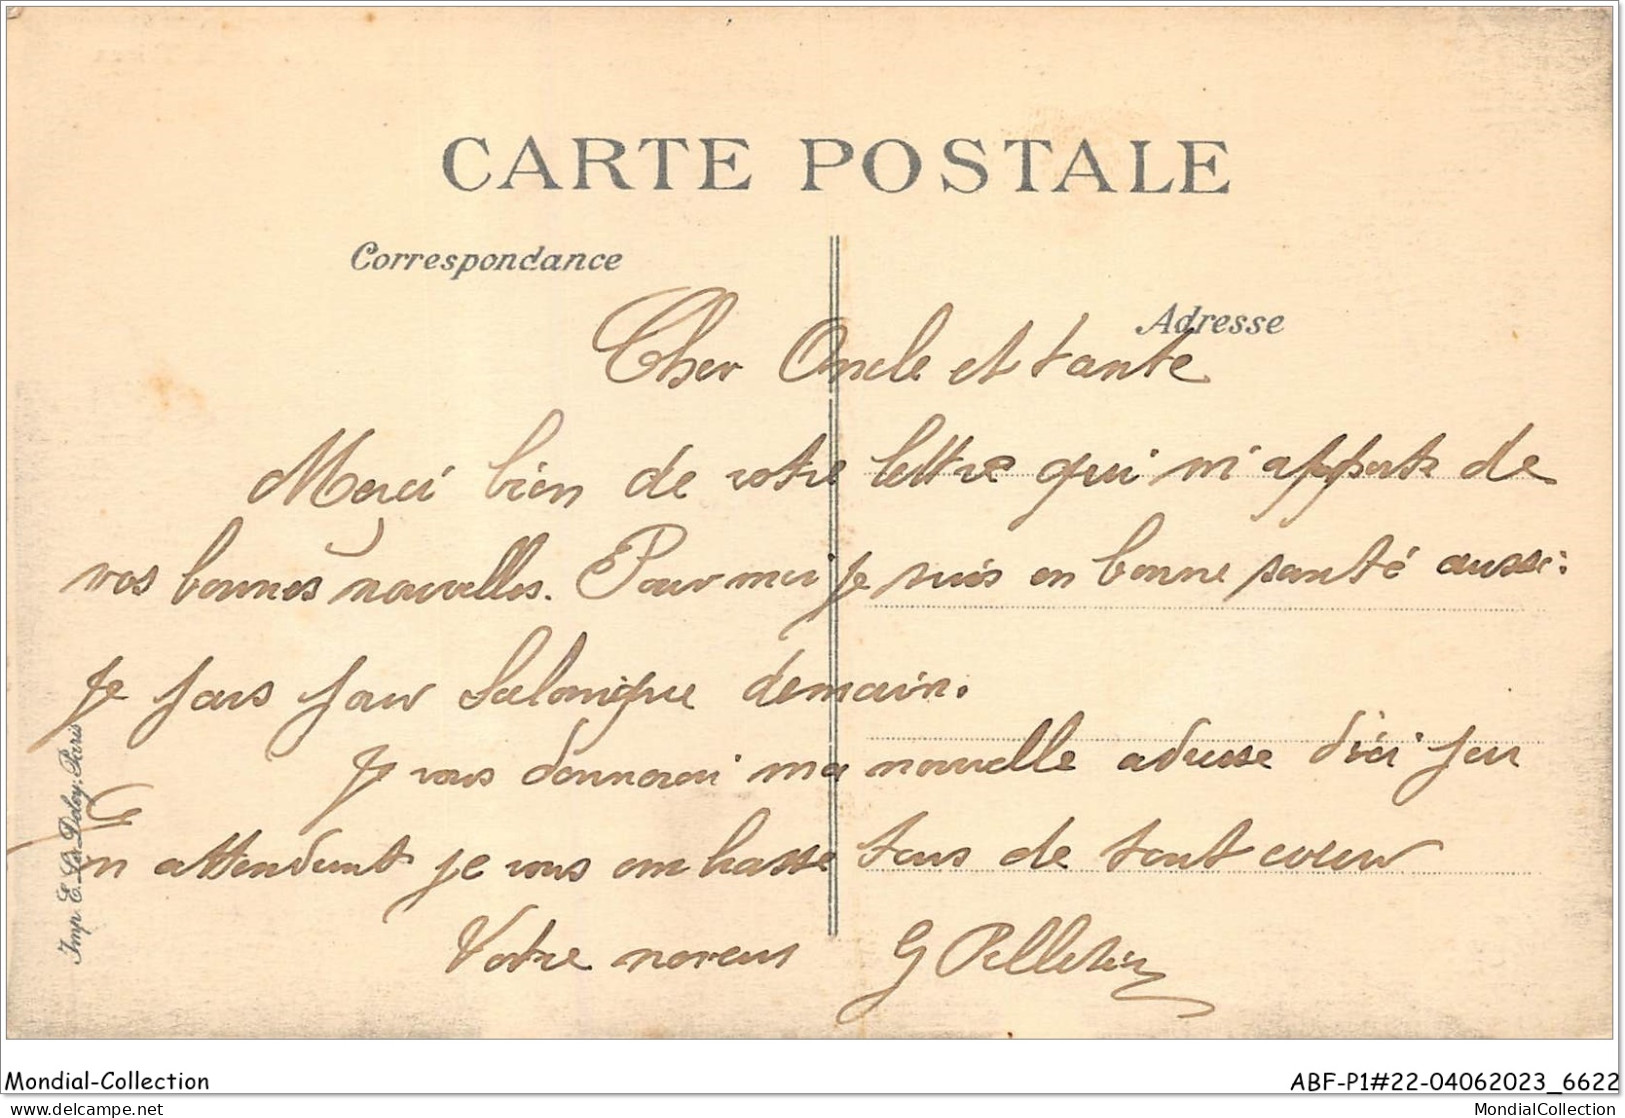 CARTE POSTALE
Correspondance
Adresse
Cher Oncle et tante
Merci bien de votre lettre qui m'apporte de
vos bonnes nouvelles. Pour moi je suis en bonne santé aussi:
je pars pour Salonique demain.
Je vous donnerai ma nouvelle adresse d'ici peu
En attendant je vous embrasse tous de tout coeur
Votre neveu G Pelletier
Imp. E. Le Deley, Paris
Mondial-Collection
ABF-P1#22-04062023_6622
www.delcampe.net
MondialCollection